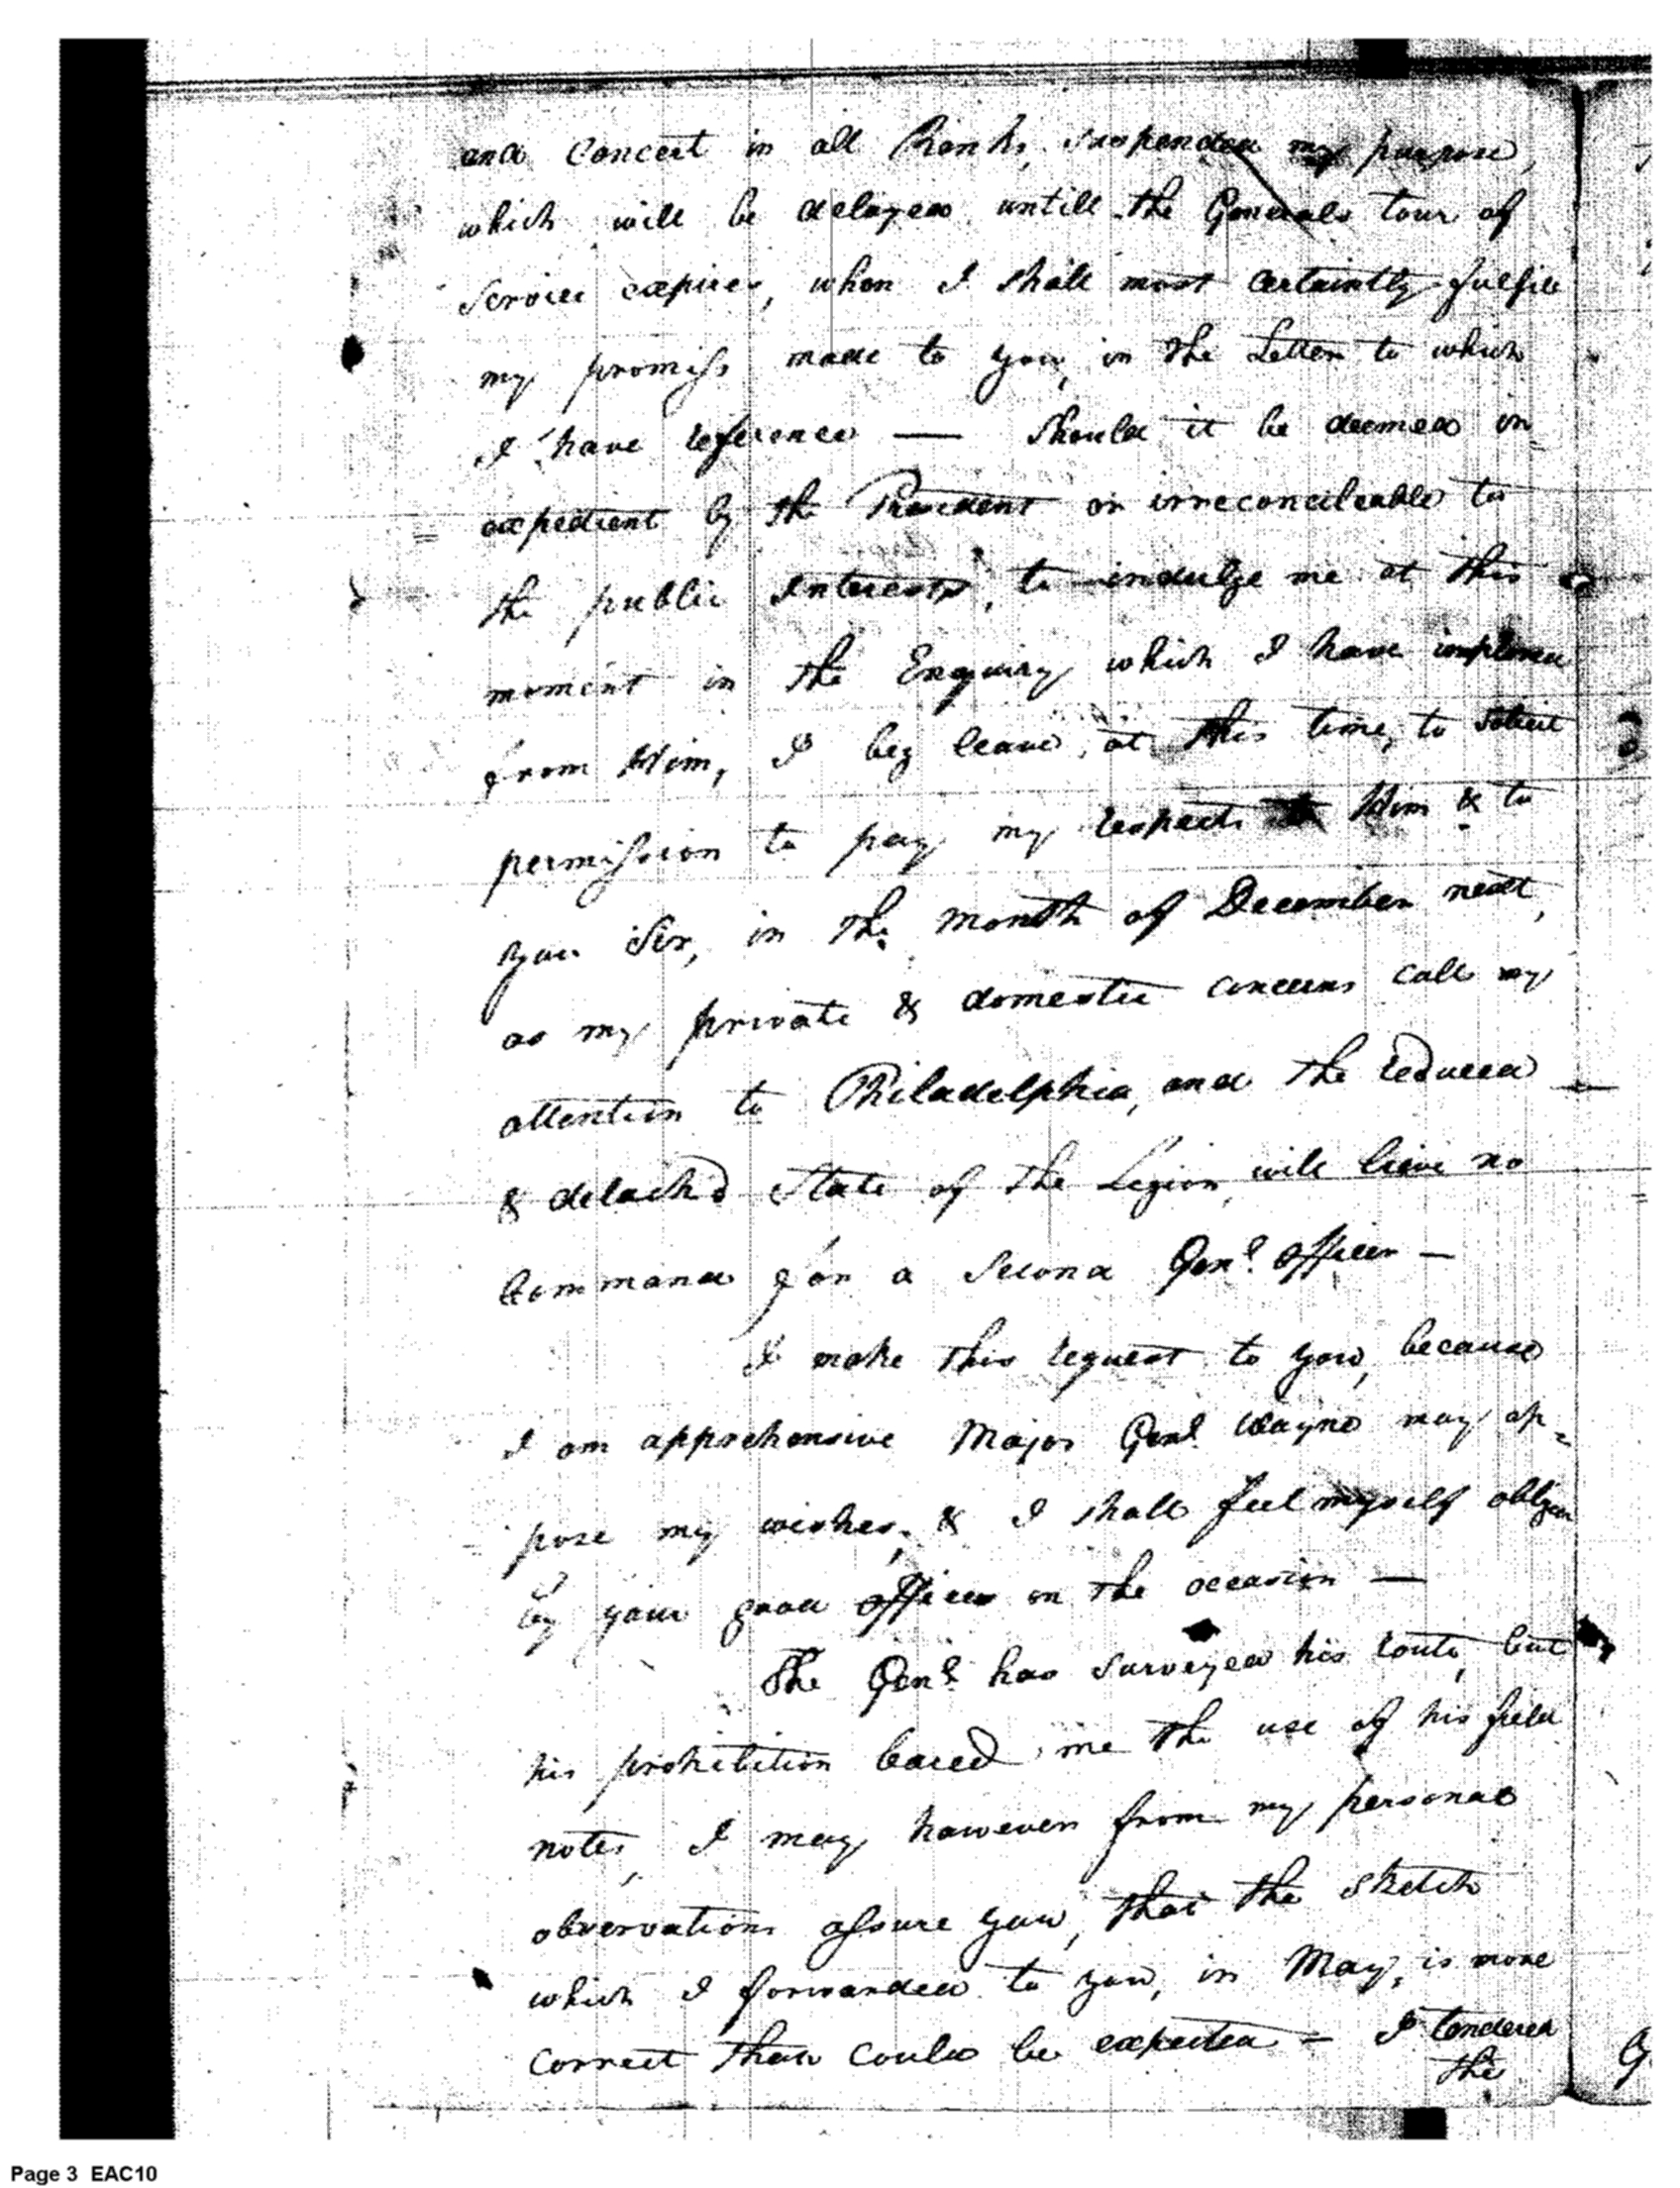 and Concert in all Ranks, suspended my purpose,
which will be delayed untill the Generals tour of
Service expires, when I shall most certaintly fulfill
my promiss made to you, in the Letter to which
I have reference — Should it be deemed in
expedient by the President or irreconcileable to
the public Interests, to indulge me at this
moment in the Enquiry which I have implored
from Him, I beg leave, at this time, to solicit
permission to pay my respects to Him & to
you Sir, in the month of December next,
as my private & domestic concerns call my
attention to Philadelphia, and the reduced
& detach'd State of the Legion, will lieve no
Command for a Second Genl. Officer —
I make this request to you, because
I am apprehensive Major Genl. Wayne may op=
pose my wishes, & I shall feel myself obliged
by your good offices on the occasion —
The Genl. has surveyed his route, but
his prohibition bared me the use of his field
notes, I may however from my personal
observations assure you, that the sketch
which I forwarded to you, in May, is more
correct than could be expected — I tendered
the
Page 3 EAC10